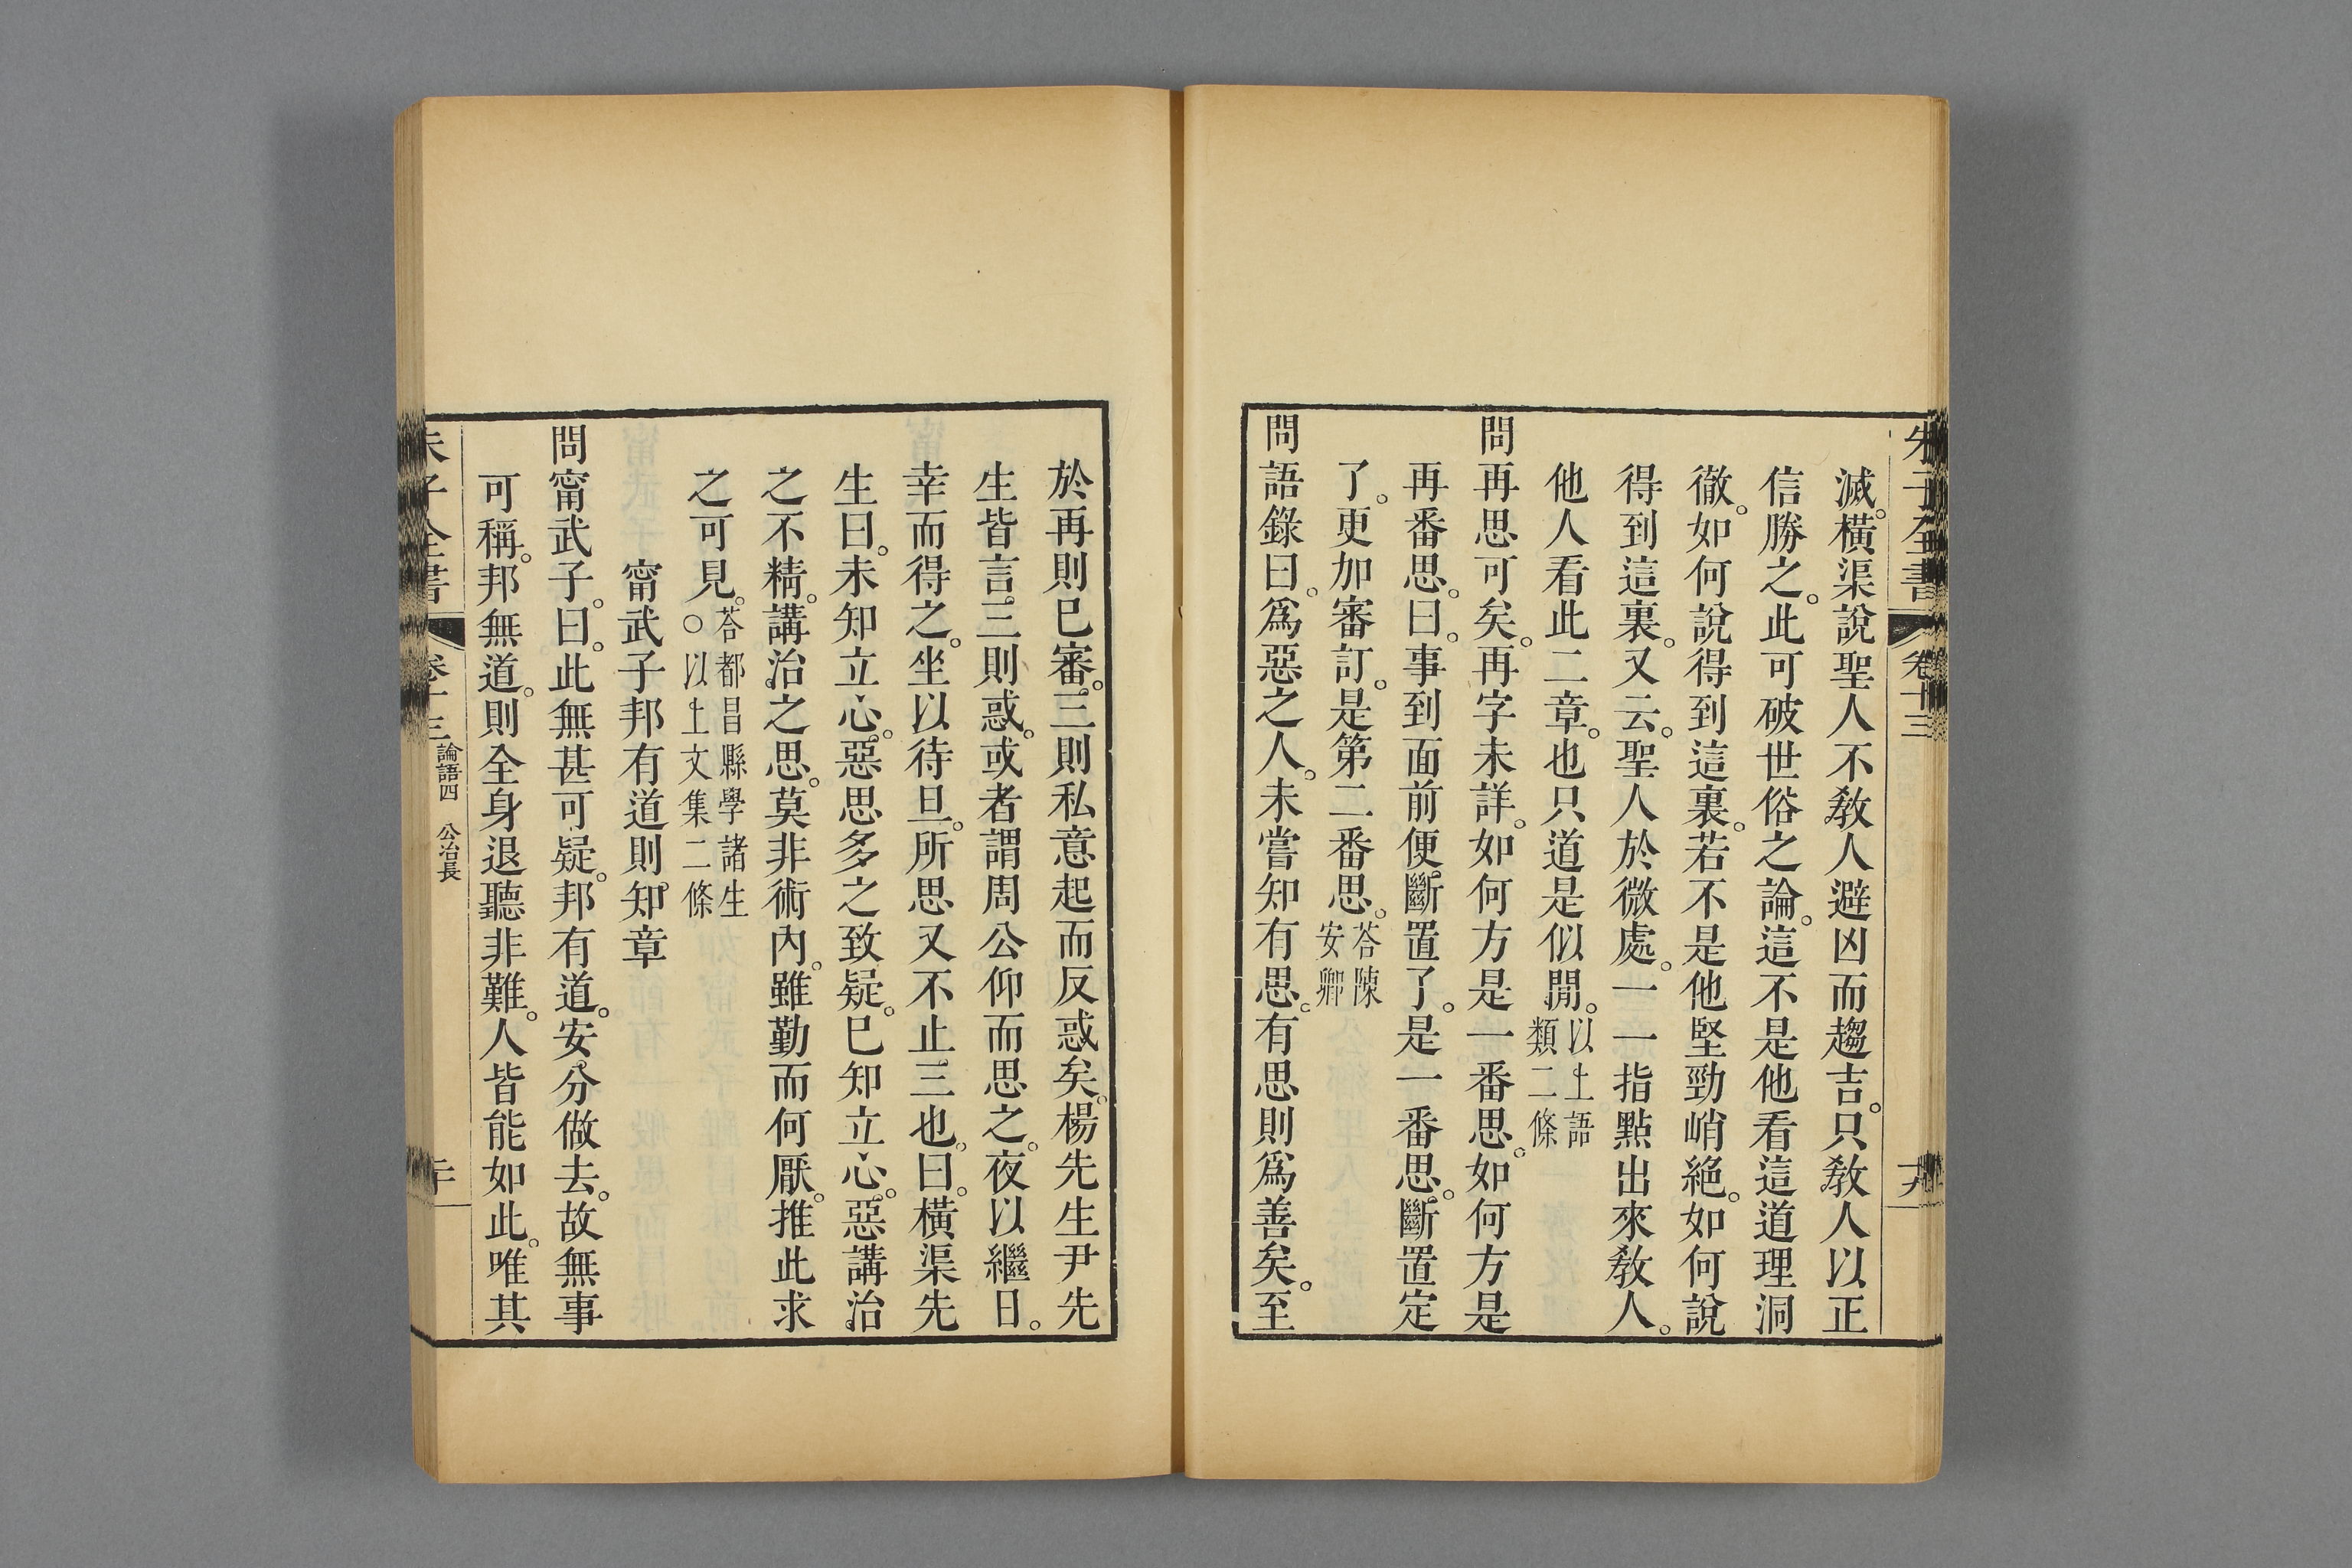 朱子全書 卷十三
滅。橫渠說聖人不教人避凶而趨吉。只教人以正
信勝之。此可破世俗之論。這不是他看這道理洞
徹。如何說得到這裏。若不是他堅勁峭絕。如何說
得到這裏。又云。聖人於微處。一一指點出來教人。
他人看此二章。也只道是似閒。以上語類二條
問再思可矣。再字未詳。如何方是一番思。如何方是
再番思。曰。事到面前便斷置了。是一番思。斷置定
了。更加審訂。是第二番思。荅陳安卿
問語錄曰。爲惡之人。未嘗知有思。有思則爲善矣。至
於再則已審。三則私意起而反惑矣。楊先生尹先
生皆言三則惑。或者謂周公仰而思之。夜以繼日。
幸而得之。坐以待旦。所思又不止三也。曰。橫渠先
生曰。未知立心。惡思多之致疑。已知立心。惡講治
之不精。講治之思。莫非術內。雖勤而何厭。推此求
之可見。荅都昌縣學諸生○以上文集二條
甯武子邦有道則知章
問甯武子。曰。此無甚可疑。邦有道。安分做去。故無事
可稱。邦無道。則全身退聽非難。人皆能如此。唯其
朱子全書 卷十三 論語四 公冶長